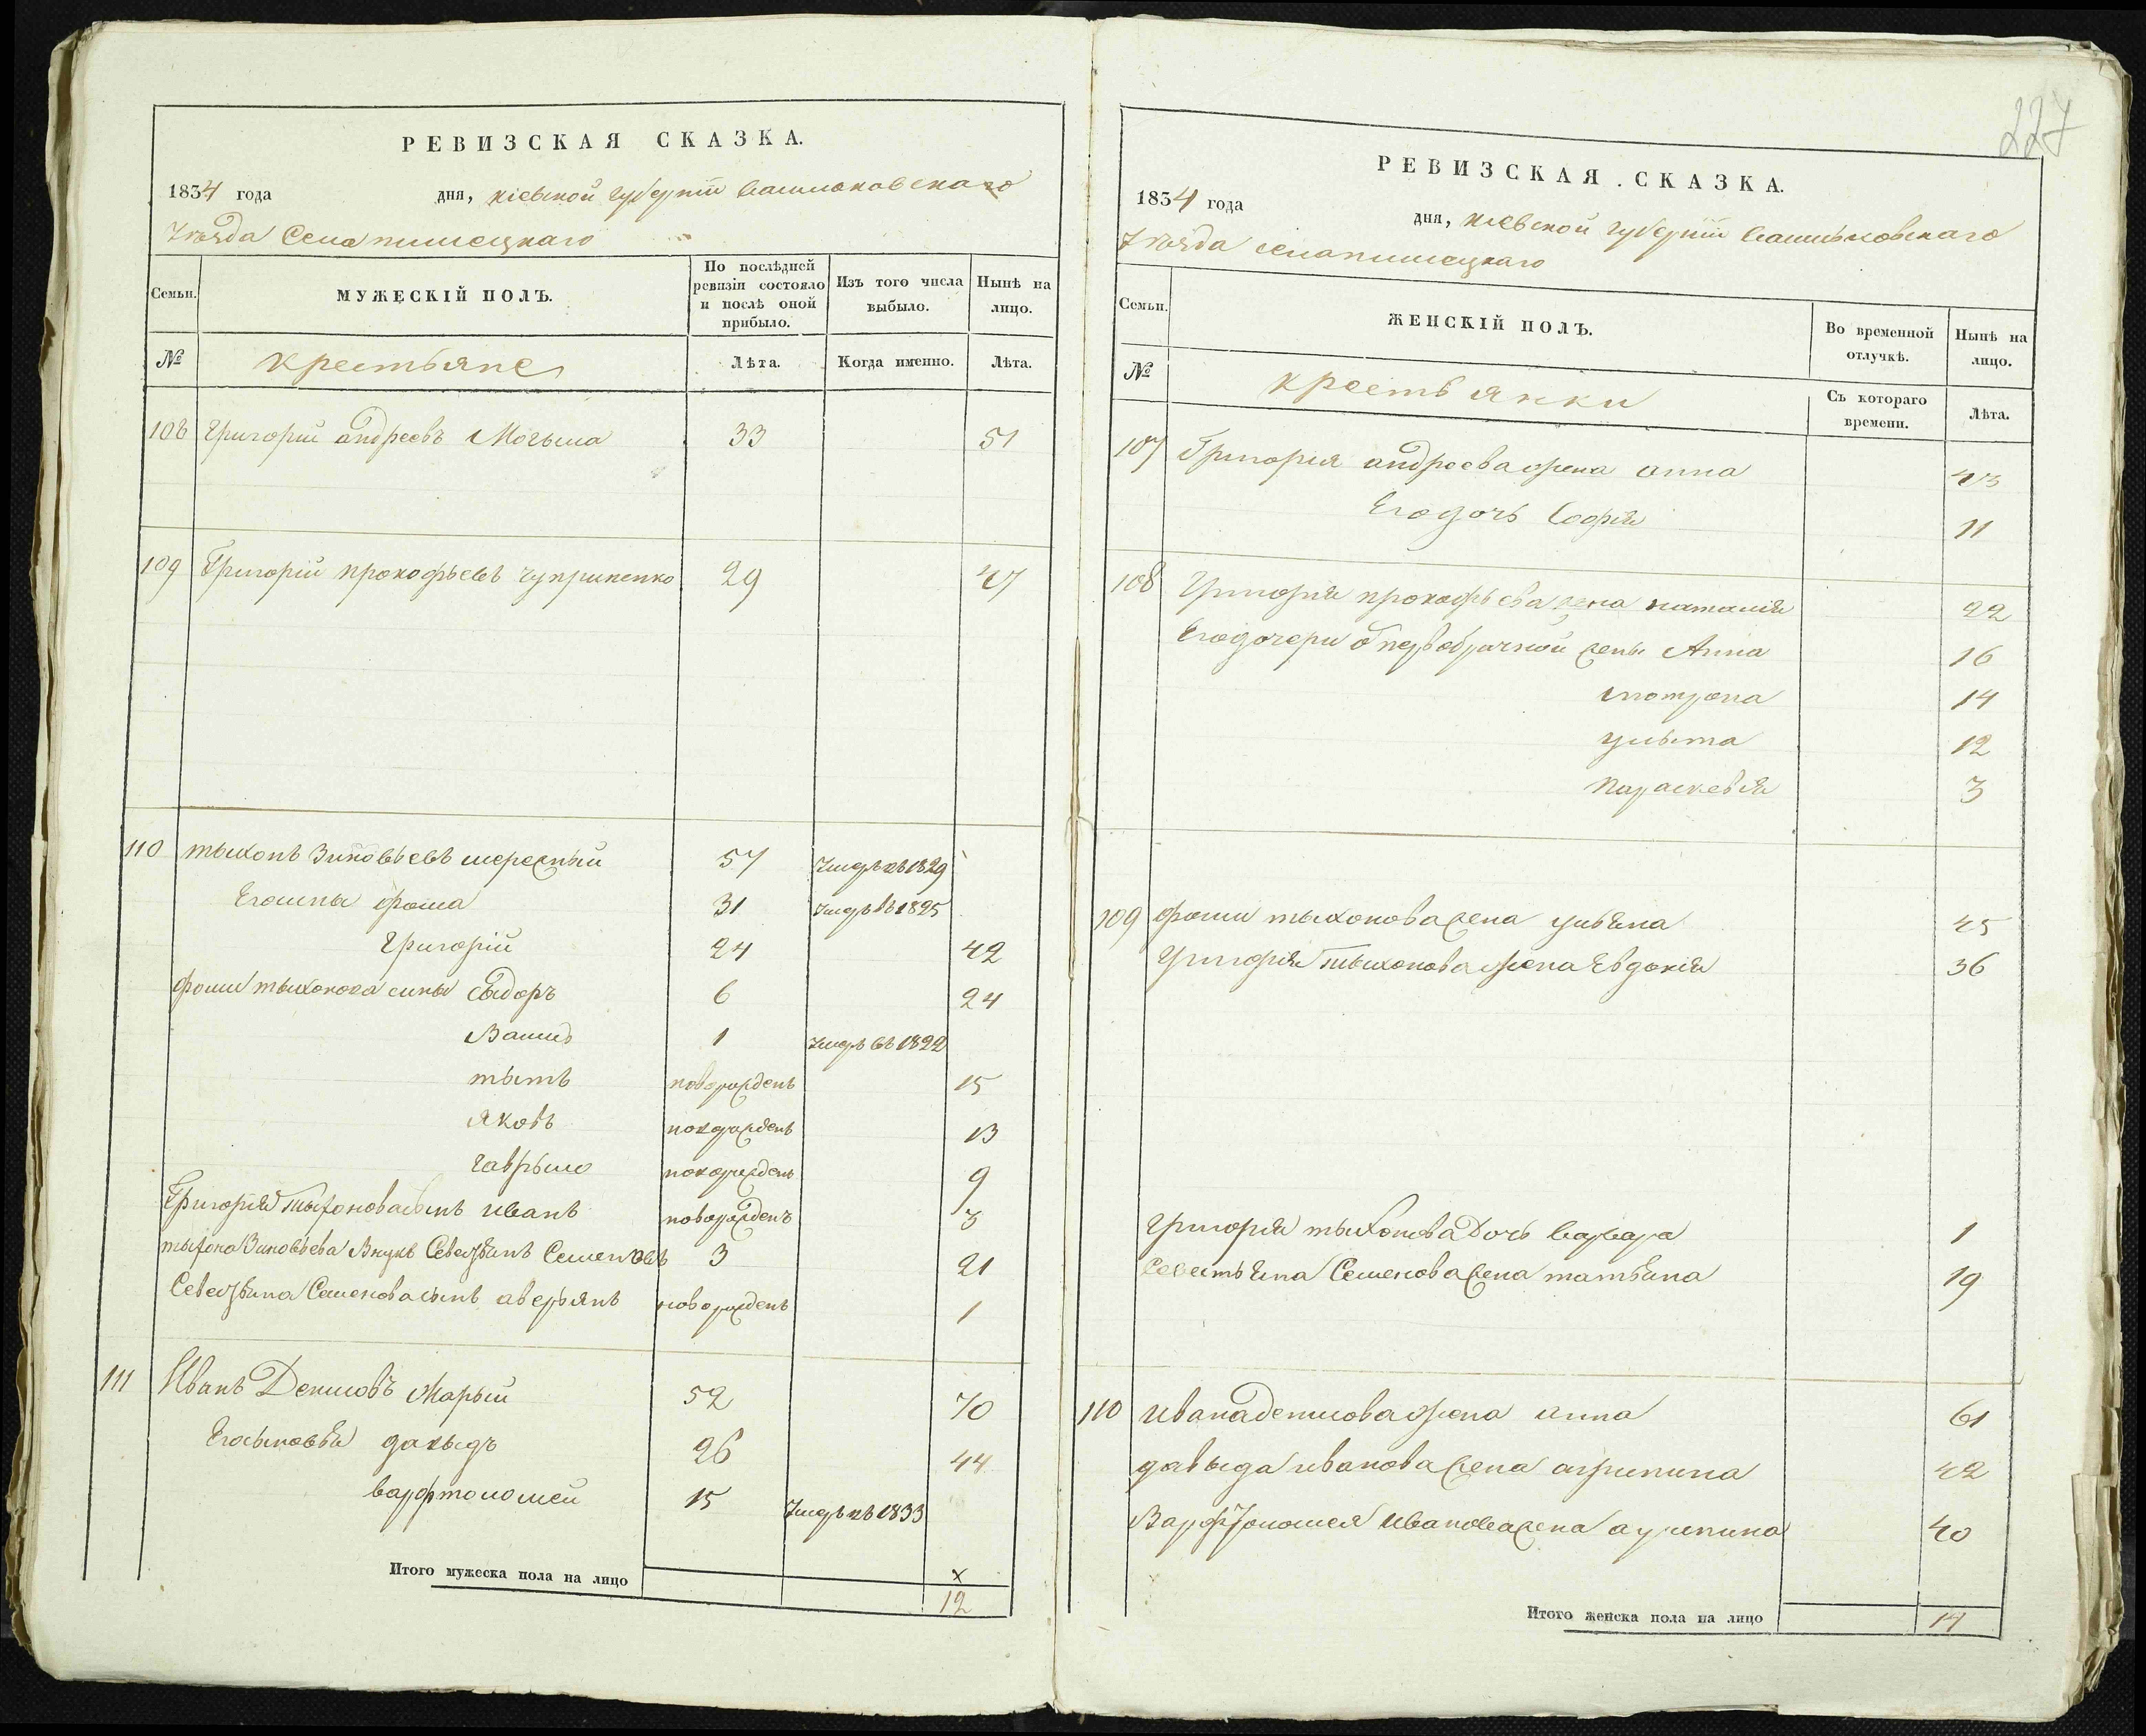 227
РЕВИЗСКАЯ СКАЗКА.
1834 года дня, кіевской губерніи Васильковскаго
Уѣзда Села
Семьи. МУЖЕСКІЙ ПОЛЪ. По послѣдней ревизіи состояло и послѣ оной прибыло. Изъ того числа выбыло. Нынѣ на лицо.
№ крестьяне Лѣта. Когда именно. Лѣта.
108 Григорій андреевъ Могыла 33 51
109 Григорій прокофьевъ чуприненко 29 47
110 тыхонъ Зиновьевъ 57 Умеръ въ 1829
Его сыны фома 31 Умеръ въ 1825
Григорій 24 42
фомы тыхонова сыны Сыдоръ 6 24
1 Умеръ въ 1822
тытъ новорожденъ 15
яковъ новорожденъ 13
гаврыло новорожденъ 9
Григорія тыхонова сынъ иванъ новорожденъ 3
тыхона Зиновьева Внукъ Севастьянъ Семеновъ 3 21
Севастьяна Семенова сынъ аверьянъ новорожденъ 1
111 Иванъ Денисовъ Марый 52 70
Его сыновья давыдъ 26 44
варфтоломей 15 Умеръ въ 1833
Итого мужеска пола на лицо 12
РЕВИЗСКАЯ СКАЗКА.
1834 года дня, кіевской губерніи Васильковскаго
Уѣзда села
Семьи. ЖЕНСКІЙ ПОЛЪ. Во временной отлучкѣ. Нынѣ на лицо.
№ крестьянки Съ котораго времени. Лѣта.
107 Григорія андреева жена анна 43
Его дочь Софія 11
108 Григорія прокофьева жена наталія 22
Его дочери первобрачной жены Анна 16
мотрона 14
ульита 12
Параскевія 3
109 фомы тыхонова жена ульяна 45
Григорія тыхонова жена Евдокія 36
Григорія тыхонова Дочь варвара 1
Севастьяна Семенова жена татьяна 19
110 ивана денисова жена анна 61
давыда иванова жена агрипина 42
Варфтоломея иванова жена агрипина 40
Итого женска пола на лицо 14